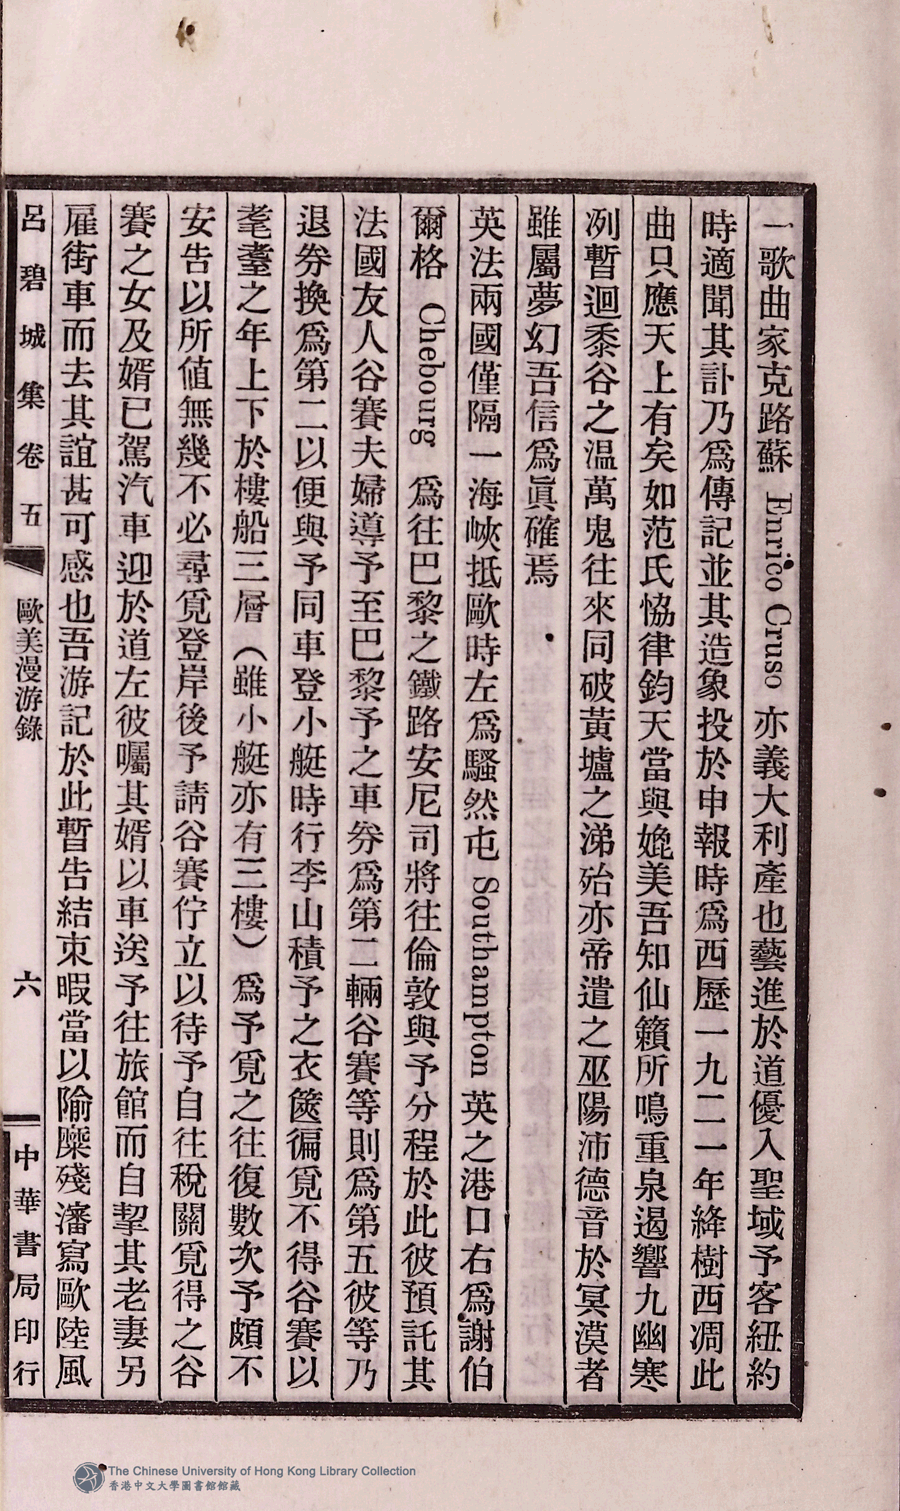 一歌曲家克路蘇 Enrico Cruso 亦義大利產也藝進於道優入聖域予客紐約
時適聞其訃乃爲傳記並其造象投於申報時爲西歷一九二一年絳樹西凋此
曲只應天上有矣如范氏恊律鈞天當與媲美吾知仙籟所鳴重泉遏響九幽寒
冽暫迴黍谷之温萬鬼往來同破黃壚之涕殆亦帝遣之巫陽沛德音於冥漠者
雖屬夢幻吾信爲眞確焉
英法兩國僅隔一海峽抵歐時左爲騷然屯 Southampton 英之港口右爲謝伯
爾格 Chebourg 爲往巴黎之鐵路安尼司將往倫敦與予分程於此彼預託其
法國友人谷賽夫婦導予至巴黎予之車劵爲第二輛谷賽等則爲第五彼等乃
退劵換爲第二以便與予同車登小艇時行李山積予之衣篋徧覓不得谷賽以
耄耋之年上下於樓船三層（雖小艇亦有三樓）爲予覓之往復數次予頗不
安告以所值無幾不必尋覓登岸後予請谷賽佇立以待予自往稅關覓得之谷
賽之女及婿已駕汽車迎於道左彼囑其婿以車送予往旅館而自挈其老妻另
雇街車而去其誼甚可感也吾游記於此暫告結束暇當以隃麋殘瀋寫歐陸風
呂碧城集卷五 歐美漫游錄 六 中華書局印行
The Chinese University of Hong Kong Library Collection
香港中文大學圖書館館藏